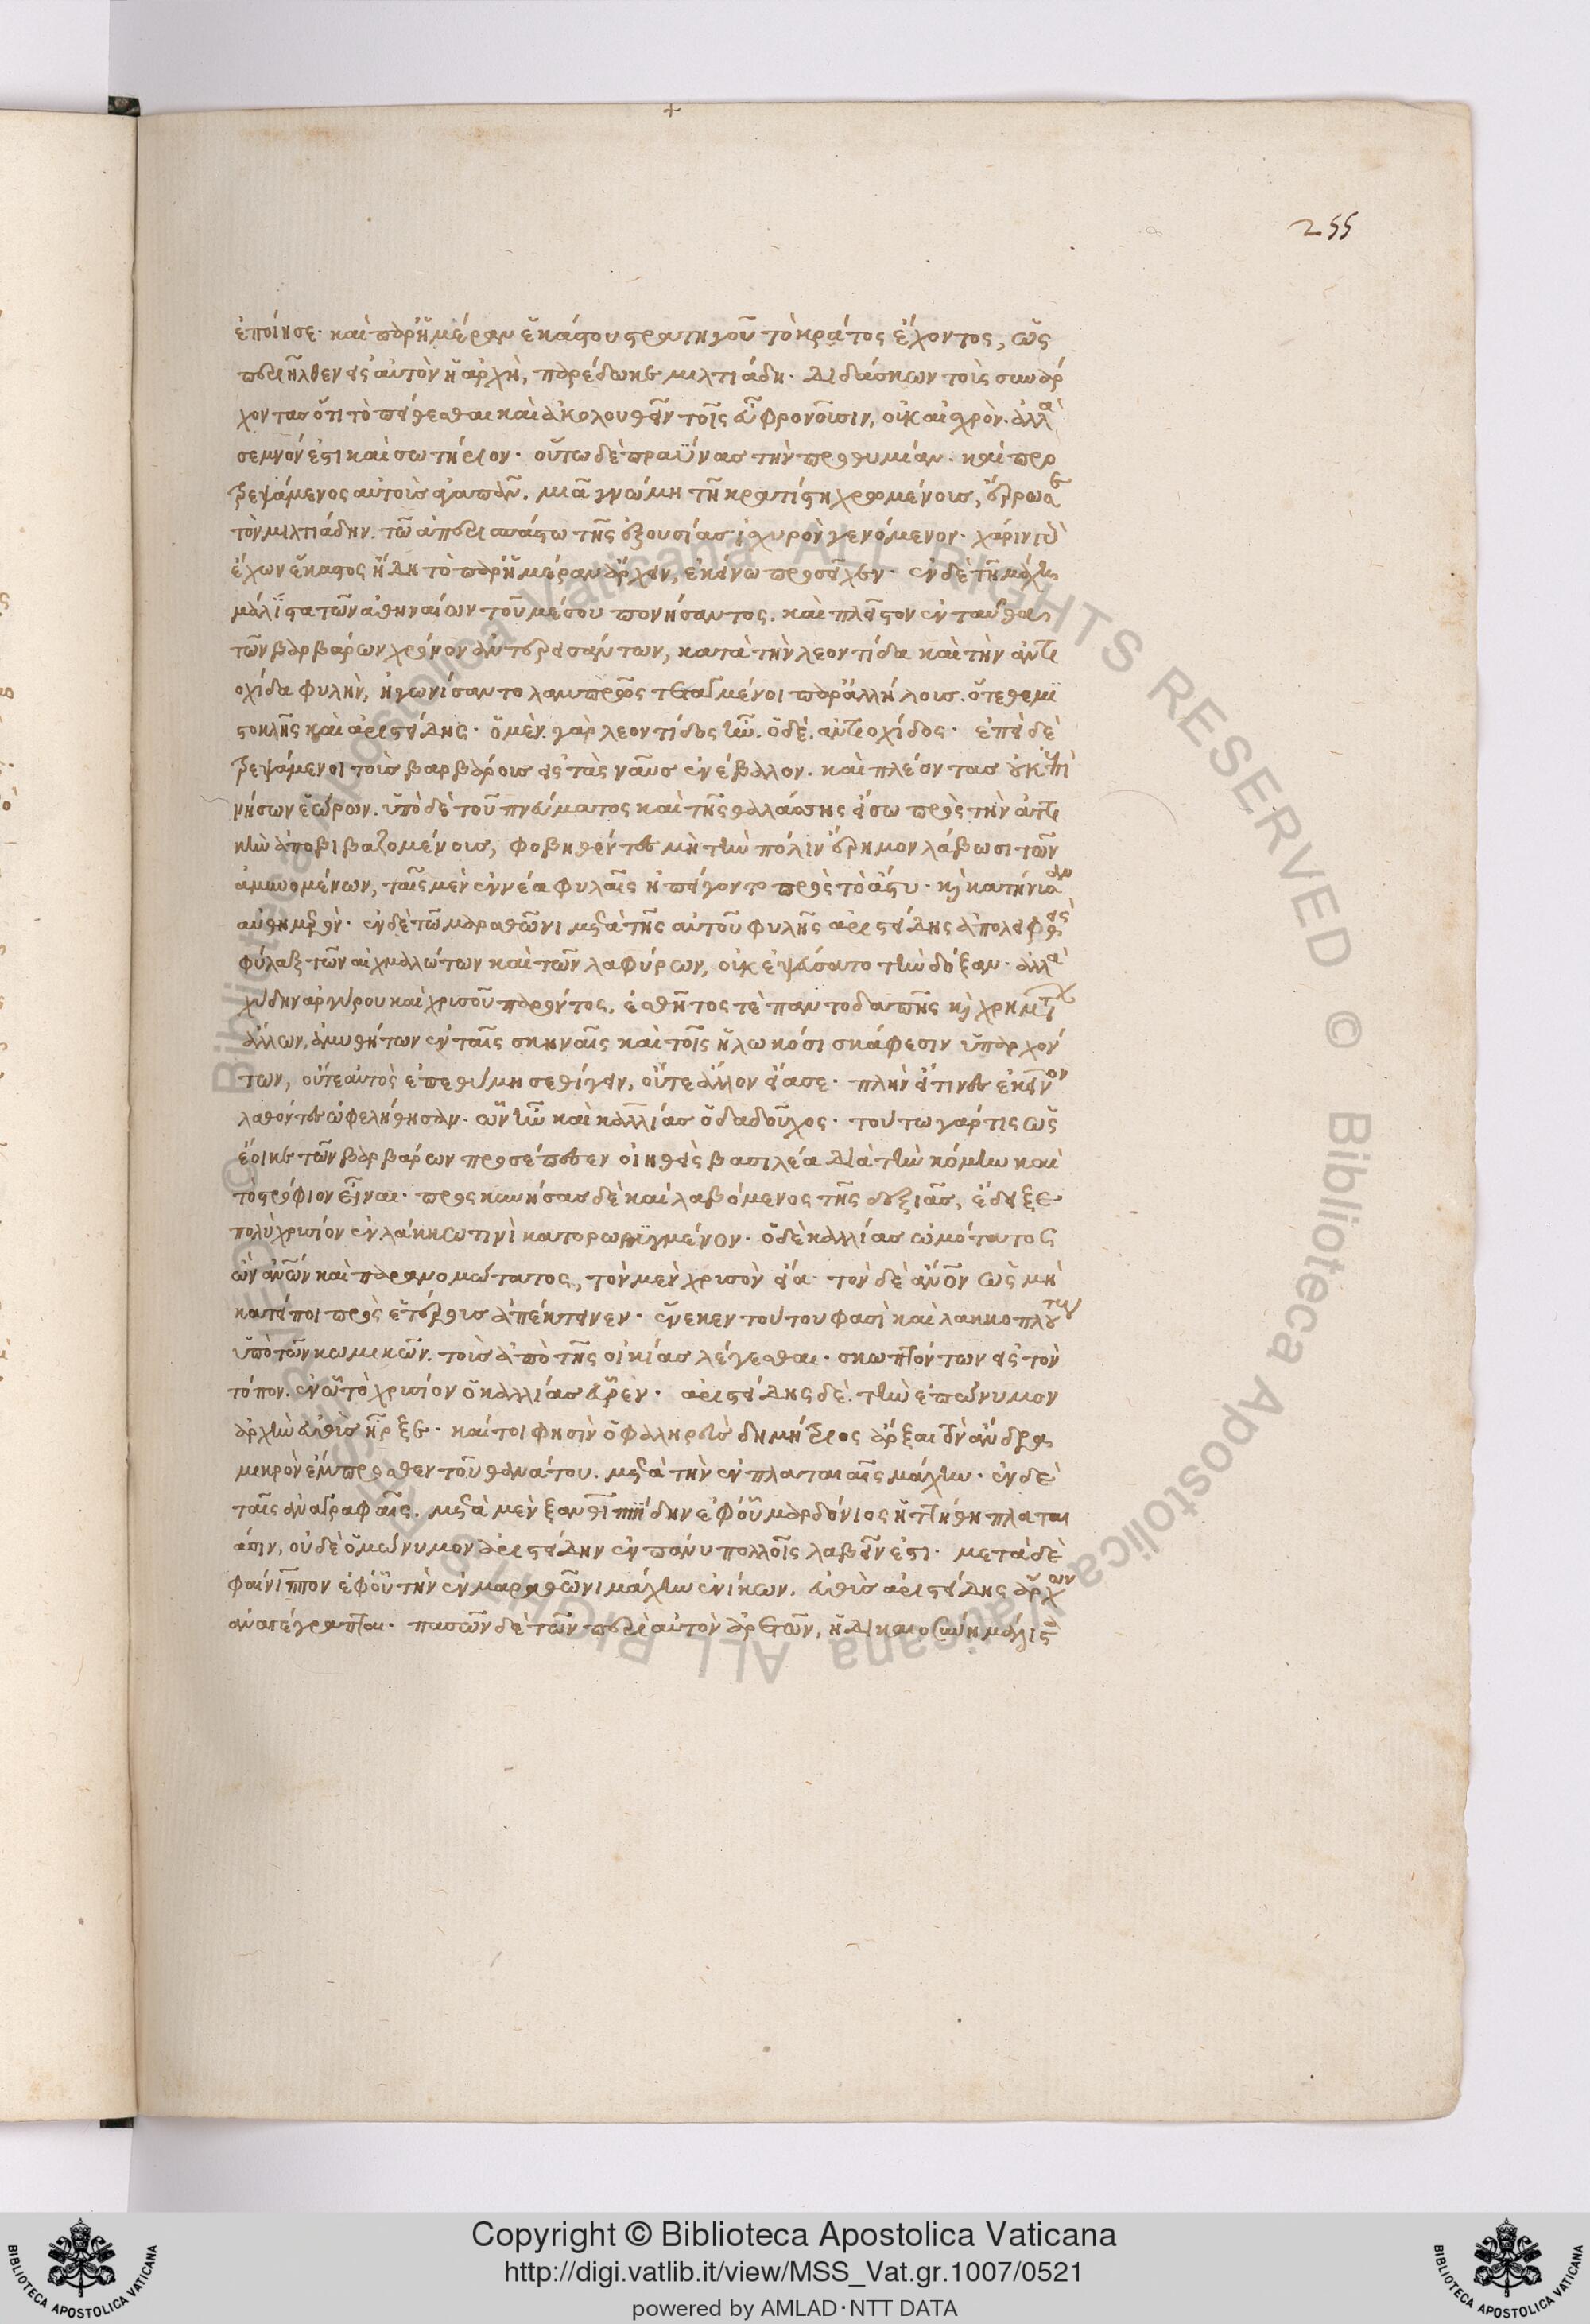 255
ἐποίησε· καὶ παρ' ἡμέραν ἑκάστου στρατηγοῦ τὸ κράτος ἔχοντος, ὡς
περιῆλθεν εἰς αὐτὸν ἡ ἀρχὴ, παρέδωκε μιλτιάδη· διδάσκων τοὺς συνάρ
χοντας ὅτι τὸ πείθεσθαι καὶ ἀκολουθεῖν τοῖς εὖ φρονοῦσιν, οὐκ αἰσχρὸν· ἀλλὰ
σεμνόν ἐστι καὶ σωτήριον· οὕτω δὲ πραΰνας τὴν προθυμίαν· καὶ προ
τρεψάμενος αὐτοὺς ἀγαπᾶν, μιᾶ γνώμη τῆ κρατίστη χρωμένους, ἔρρωσε
τὸν μιλτιάδην. τῶ ἀπερισπάστω τῆς ἐξουσίας ἰσχυρὸν γενόμενον· χαίρειν
ἐῶν ἕκαστος ἤδη τὸ παρ' ἡμέραν ἄρχειν, ἐκείνω προσεῖχεν· ἐν δὲ τῆ μάχη
μάλιστα τῶν ἀθηναίων τοῦ μέσου πονήσαντος. καὶ πλεῖστον ἐνταῦθα
τῶν βαρβάρων χρόνον ἀντερεισάντων, κατὰ τὴν λεοντίδα καὶ τὴν ἀντι
οχίδα φυλὴν, ἠγωνίσαντο λαμπρῶς τεταγμένοι παρ' ἀλλήλους. ὅτε θεμι
στοκλῆς καὶ ἀριστείδης· ὁ μὲν γὰρ λεοντίδος ἦν. ὁ δὲ, ἀντιοχίδος· ἐπεὶ δὲ
τρεψάμενοι τοὺς βαρβάρους εἰς τὰς ναῦς ἐνέβαλον. καὶ πλέοντας οὐκ ἐπὶ
νήσων ἑώρων. ὑπὸ δὲ τοῦ πνεύματος καὶ τῆς θαλάσσης εἴσω πρὸς τὴν ἀττι
κὴν ἀποβιβαζομένους, φοβηθέντες μὴ τὴν πόλιν ἔρημον λάβωσι τῶν
ἀμυνομένων, ταῖς μὲν ἐννέα φυλαῖς ἠπείγοντο πρὸς τὸ ἄστυ· καὶ κατήνυσαν
αὐθημερὸν· ἐν δὲ τῶ μαραθῶνι μετὰ τῆς αὐτοῦ φυλῆς ἀριστείδης ἀπολειφθεὶς
φύλαξ τῶν αἰχμαλώτων καὶ τῶν λαφύρων, οὐκ ἐψεύσατο τὴν δόξαν· ἀλλὰ
χύδην ἀργύρου καὶ χρυσοῦ παρόντος. ἐσθῆτος τὲ παντοδαπῆς καὶ χρημάτων
ἄλλων, ἀμυθήτων ἐν ταῖς σκηναῖς καὶ τοῖς ἡλωκόσι σκάφεσιν ὑπαρχόν
των, οὔτε αὐτὸς ἐπεθύμησε θίγειν, οὔτε ἄλλον εἴασε· πλὴν εἴ τινες ἐκεῖνον
λαθόντες ὠφελήθησαν· ὧν ἦν καὶ καλλίας ὁ δαδοῦχος· τούτω γάρ τις ὡς
ἔοικε τῶν βαρβάρων προσέπεσεν οἰηθεὶς βασιλέα διὰ τὴν κόμην καὶ
τὸ στρόφιον εἶναι· προσκυνήσας δὲ καὶ λαβόμενος τῆς δεξιᾶς, ἔδειξε
πολὺ χρυσίον ἐν λάκκω τινὶ κατορωρυγμένον· ὁ δὲ καλλίας ὠμότατος
ὢν ἀνων καὶ παρανομώτατος, τὸν μὲν χρυσὸν εἷα· τὸν δὲ ἄνον ὡς μὴ
κατείποι πρὸς ἑτέρους ἀπέκτεινεν· ἕνεκεν τούτου φασὶ καὶ λακκοπλούτους
ὑπὸ τῶν κωμικῶν, τοὺς ἀπὸ τῆς οἰκίας λέγεσθαι· σκωπτόντων εἰς τὸν
τόπον. ἐν ᾧ τὸ χρυσίον ὁ καλλίας εὗρεν· ἀριστείδης δὲ, τὴν ἐπώνυμον
ἀρχὴν εὐθὺς ἦρξε· καίτοι φησὶν ὁ φαληρεὺς δημήτριος ἄρξαι τὸν ἄνδρα
μικρὸν ἔμπροσθεν τοῦ θανάτου. μετὰ τὴν ἐν πλαταιαῖς μάχην· ἐν δὲ
ταῖς ἀναγραφαῖς, μετὰ μὲν ξανθιππίδην ἐφ' οὗ μαρδόνιος ἡττήθη πλαται
άσιν, οὐδὲ ὁμώνυμον ἀριστείδην ἐν πάνυ πολλοῖς λαβεῖν ἐστι· μετὰ δὲ
φαίνιππον ἐφ' οὗ τὴν ἐν μαραθῶνι μάχην ἐνίκων. εὐθὺς ἀριστείδης ἄρχων
ἀναγέγραπται· πασῶν δὲ τῶν περὶ αὐτὸν ἀρετῶν, ἡ δικαιοσύνη μάλιστα
Copyright © Biblioteca Apostolica Vaticana
http://digi.vatlib.it/view/MSS_Vat.gr.1007/0521
powered by AMLAD·NTT DATA